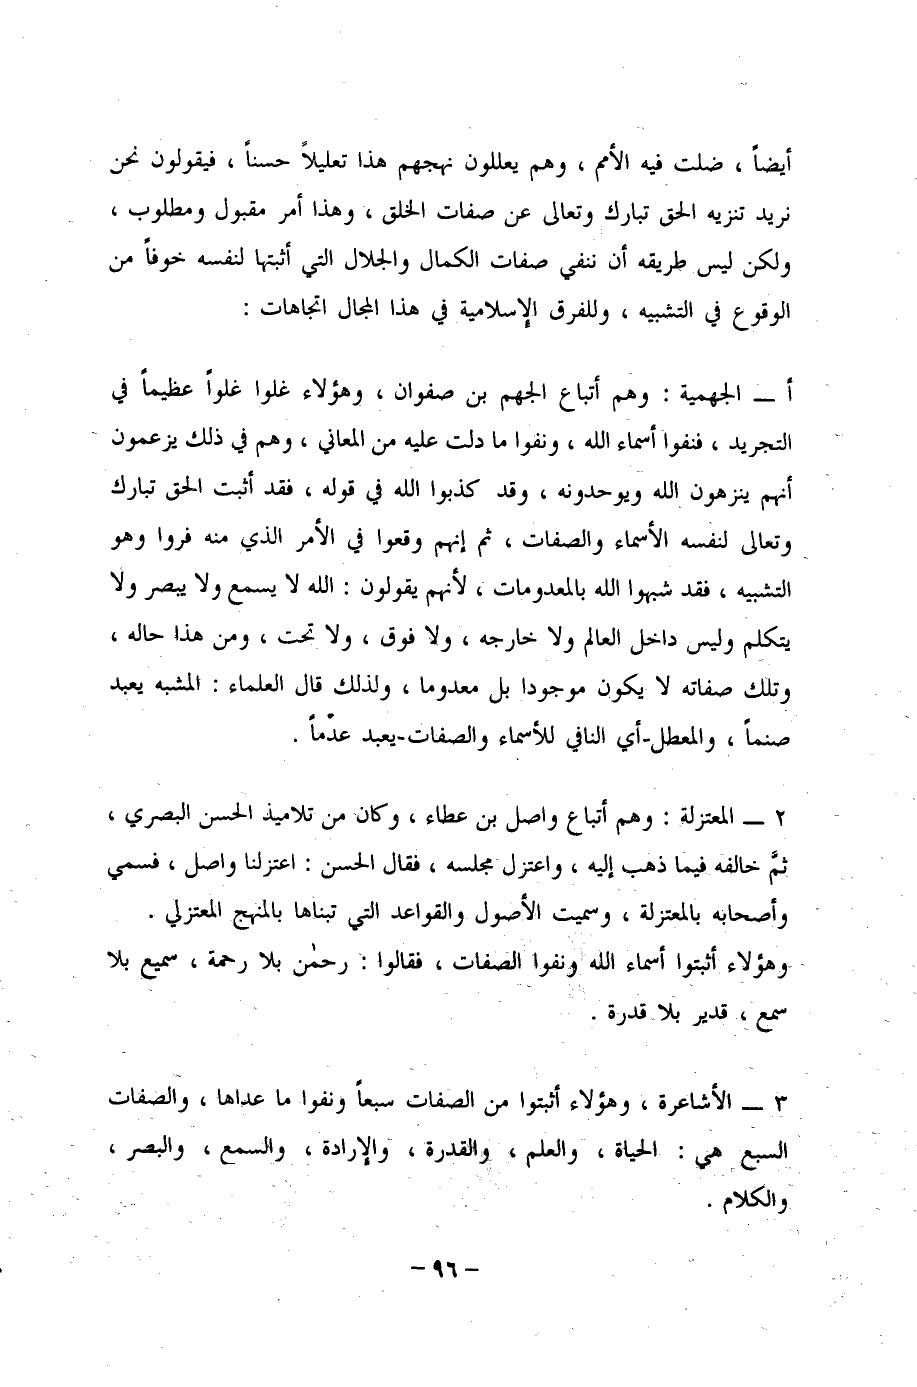 أيضاً ، ضلت فيه الأمم ، وهم يعللون نهجهم هذا تعليلاً حسناً ، فيقولون نحن
نريد تنزيه الحق تبارك وتعالى عن صفات الخلق ، وهذا أمر مقبول ومطلوب ،
ولكن ليس طريقه أن ننفي صفات الكمال والجلال التي أثبتها لنفسه خوفاً من
الوقوع في التشبيه ، وللفرق الإسلامية في هذا المجال اتجاهات :
أ ــ الجهمية : وهم أتباع الجهم بن صفوان ، وهؤلاء غلوا غلواً عظيماً في
التجريد ، فنفوا أسماء الله ، ونفوا ما دلت عليه من المعاني ، وهم في ذلك يزعمون
أنهم ينزهون الله ويوحدونه ، وقد كذبوا الله في قوله ، فقد أثبت الحق تبارك
وتعالى لنفسه الأسماء والصفات ، ثم إنهم وقعوا في الأمر الذي منه فروا وهو
التشبيه ، فقد شبهوا الله بالمعدومات ، لأنهم يقولون : الله لا يسمع ولا يبصر ولا
يتكلم وليس داخل العالم ولا خارجه ، ولا فوق ، ولا تحت ، ومن هذا حاله ،
وتلك صفاته لا يكون موجودا بل معدوما ، ولذلك قال العلماء : المشبه يعبد
صنماً ، والمعطل-أي النافي للأسماء والصفات-يعبد عدَماً .
٢ ــ المعتزلة : وهم أتباع واصل بن عطاء ، وكان من تلاميذ الحسن البصري ،
ثمَّ خالفه فيما ذهب إليه ، واعتزل مجلسه ، فقال الحسن : اعتزلنا واصل ، فسمي
وأصحابه بالمعتزلة ، وسميت الأصول والقواعد التي تبناها بالمنهج المعتزلي .
وهؤلاء أثبتوا أسماء الله ونفوا الصفات ، فقالوا : رحمٰن بلا رحمة ، سميع بلا
سمع ، قدير بلا قدرة .
٣ ــ الأشاعرة ، وهؤلاء أثبتوا من الصفات سبعاً ونفوا ما عداها ، والصفات
السبع هي : الحياة ، والعلم ، والقدرة ، والإرادة ، والسمع ، والبصر ،
والكلام .
- ٩٦ -